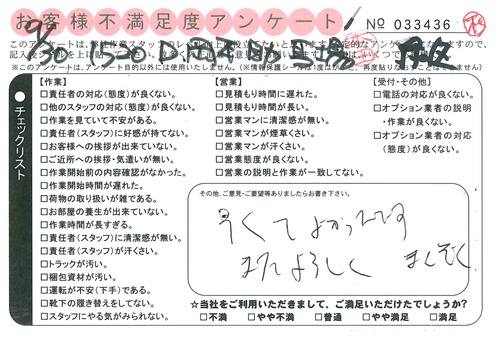 お客様不満足度アンケート
No 033436
このアンケートは、弊社作業スタッフのレベル向上に役立てたいと思います。
記入を
※このアンケートは、アンケート目的以外には使用いたしません。(※情報保護シールは1度はがすと、再度貼りなおすことはできません)
チェックリスト
【作業】
□責任者の対応(態度)が良くない。
□他のスタッフの対応(態度)が良くない。
□作業を見ていて不安がある。
□責任者(スタッフ)に好感が持てない。
□お客様への挨拶が出来ていない。
□ご近所への挨拶・気遣いが無い。
□作業開始前の内容確認がなかった。
□作業開始時間が遅れた。
□荷物の取り扱いが雑である。
□お部屋の養生が出来ていない。
□作業時間が長すぎる。
□責任者(スタッフ)に清潔感が無い。
□責任者(スタッフ)が汗くさい。
□トラックが汚い。
□梱包資材が汚い。
□運転が不安(下手)である。
□靴下の履き替えをしてない。
□スタッフにやる気がみられない。
【営業】
□見積もり時間に遅れた。
□見積もり時間が長い。
□営業マンに清潔感が無い。
□営業マンが煙草くさい。
□営業マンが汗くさい。
□営業態度が良くない。
□営業の説明と作業が一致してない。
【受付・その他】
□電話の対応が良くない。
□オプション業者の説明
・作業が良くない。
□オプション業者の対応
(態度)が良くない。
その他、ご意見・ご要望等ありましたらお書き下さい。
早くてよかったです
またよろしく
まんぞく
☆当社をご利用いただきまして、ご満足いただけたでしょうか?
□不満 □やや不満 □普通 □やや満足 □満足